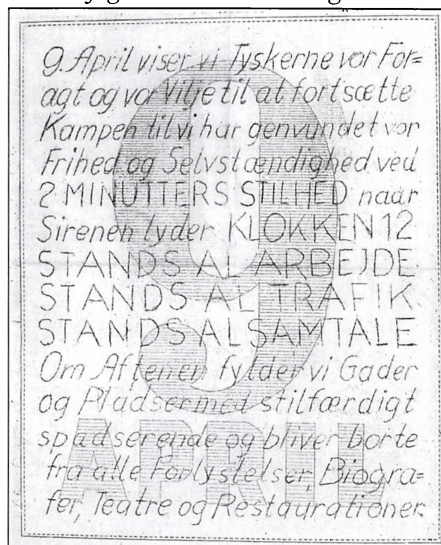 9. April viser vi Tyskerne vor For=
agt og vor Vilje til at fortsætte
Kampen til vi har genvundet vor
Frihed og Selvstændighed ved
2 MINUTTERS STILHED naar
Sirenen lyder KLOKKEN 12
STANDS AL ARBEJDE
STANDS AL TRAFIK
STANDS AL SAMTALE
Om Aftenen fylder vi Gader
og Pladser med stilfærdigt
spadserende og bliver borte
fra alle Forlystelser, Biogra=
fer, Teatre og Restaurationer.
9
APRIL